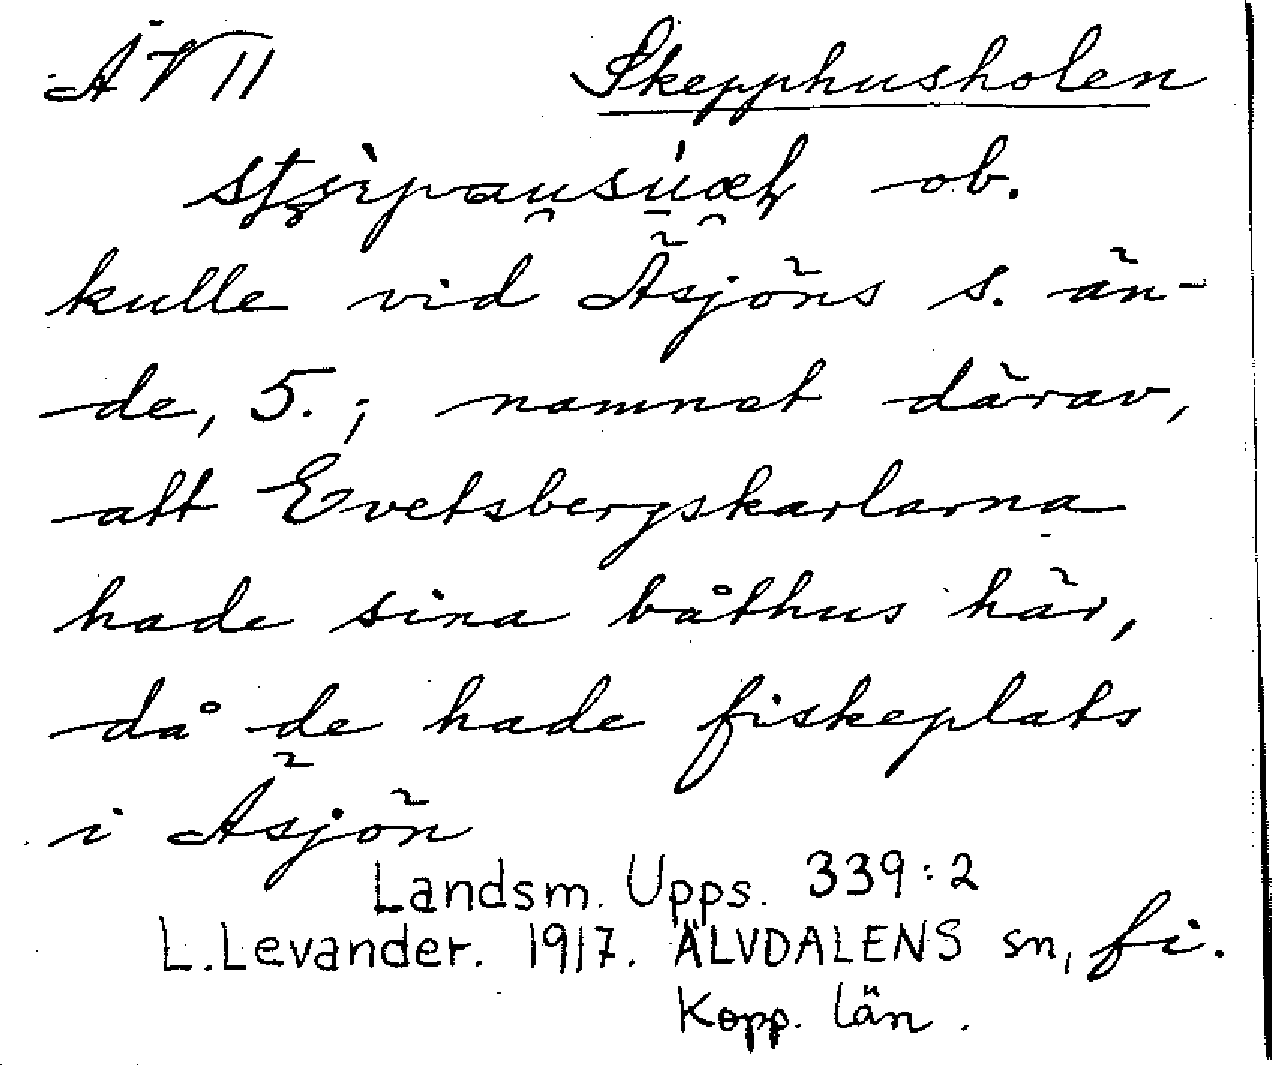 ÄV 11 Skepphusholen
ob.
kulle vid Äsjöns s. än-
de, 5.; namnet därav,
att Evetsbergskarlarna
hade sina båthus här,
då de hade fiskeplats
i Äsjön
Landsm. Upps. 339:2
L. Levander. 1917. ÄLVDALENS sn, fi.
Kopp. län.